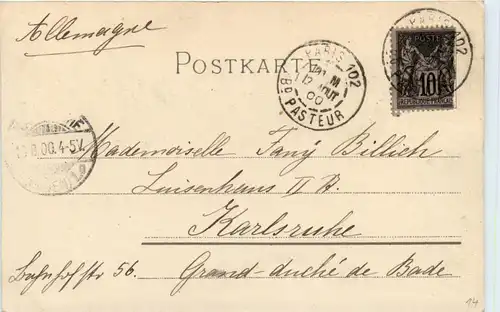 Allemagne
POSTKARTE
PARIS 102
Bd PASTEUR
AOUT
00
PARIS 102
POSTES
10
REPUBLIQUE FRANCAISE
8.00.4-5V.
Mademoiselle Fany Billich
Luisenhaus II B.
Karlsruhe
Bahnhofstr 56. Grand-duché de Bade
14